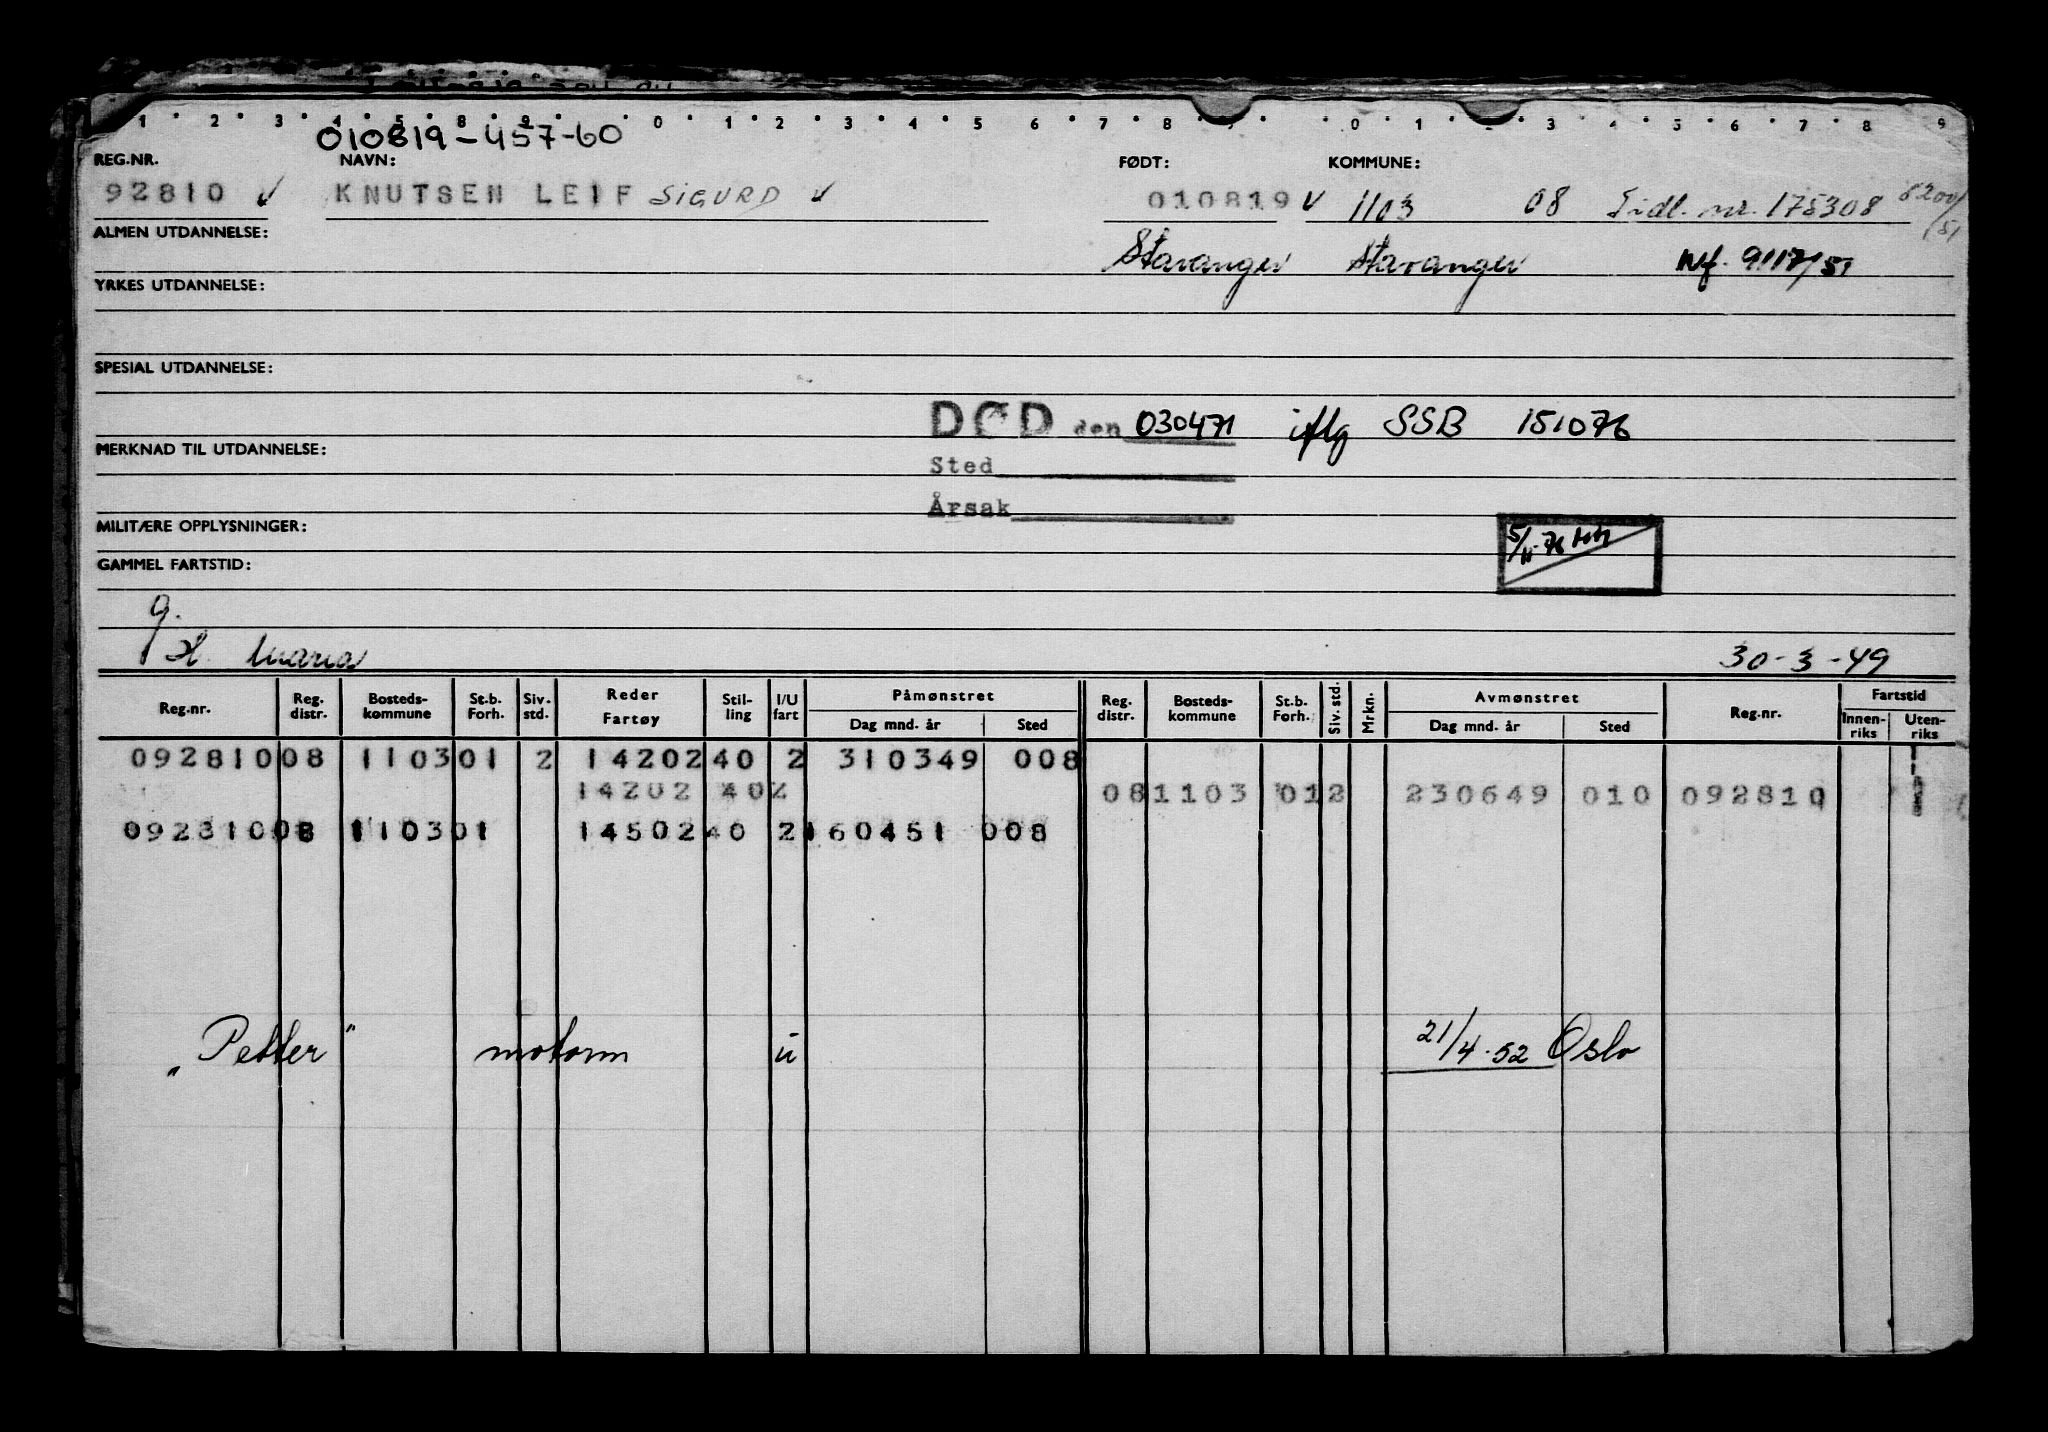 1 2 3 4 5 6 7 8 9 0 1 2 3 4 5 6 7 8 9 0 1 2 3 4 5 6 7 8 9
010819-457-60
REG.NR. NAVN: FØDT: KOMMUNE:
92810 ✓ KNUTSEN LEIF SIGURD ✓ 010819 ✓ 1103 08 Tidl. nr. 175308 8200/51
ALMEN UTDANNELSE: Stavanger Stavanger Mf. 9117/51
YRKES UTDANNELSE:
SPESIAL UTDANNELSE:
DØD den 030471 iflg SSB 151076
MERKNAD TIL UTDANNELSE:
Sted
Årsak
MILITÆRE OPPLYSNINGER:
5/11-76
GAMMEL FARTSTID:
g.
H. Maria 30-3-49
Reg.nr. Reg. distr. Bosteds-kommune St.b. Forh. Siv. std. Reder Fartøy Stil-ling I/U fart Påmønstret Dag mnd. år Sted Reg. distr. Bosteds-kommune St.b. Forh. Siv. std. Mrkn. Avmønstret Dag mnd. år Sted Reg.nr. Fartstid Innen-riks Uten-riks
092810 08 1103 01 2 14202 40 2 310349 008
14202 40 2 08 1103 01 2 230649 010 092810
092810 08 1103 01 14502 40 2 160451 008
"Petter" motorm u 21/4-52 Oslo